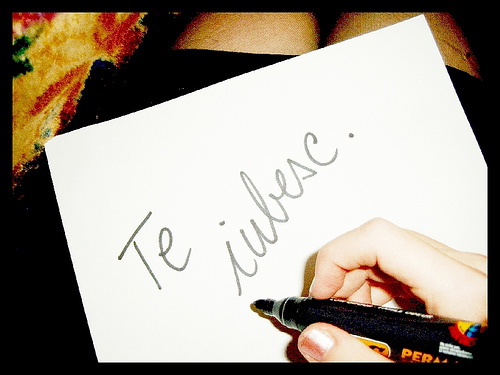 Te
iubesc.
PERMA